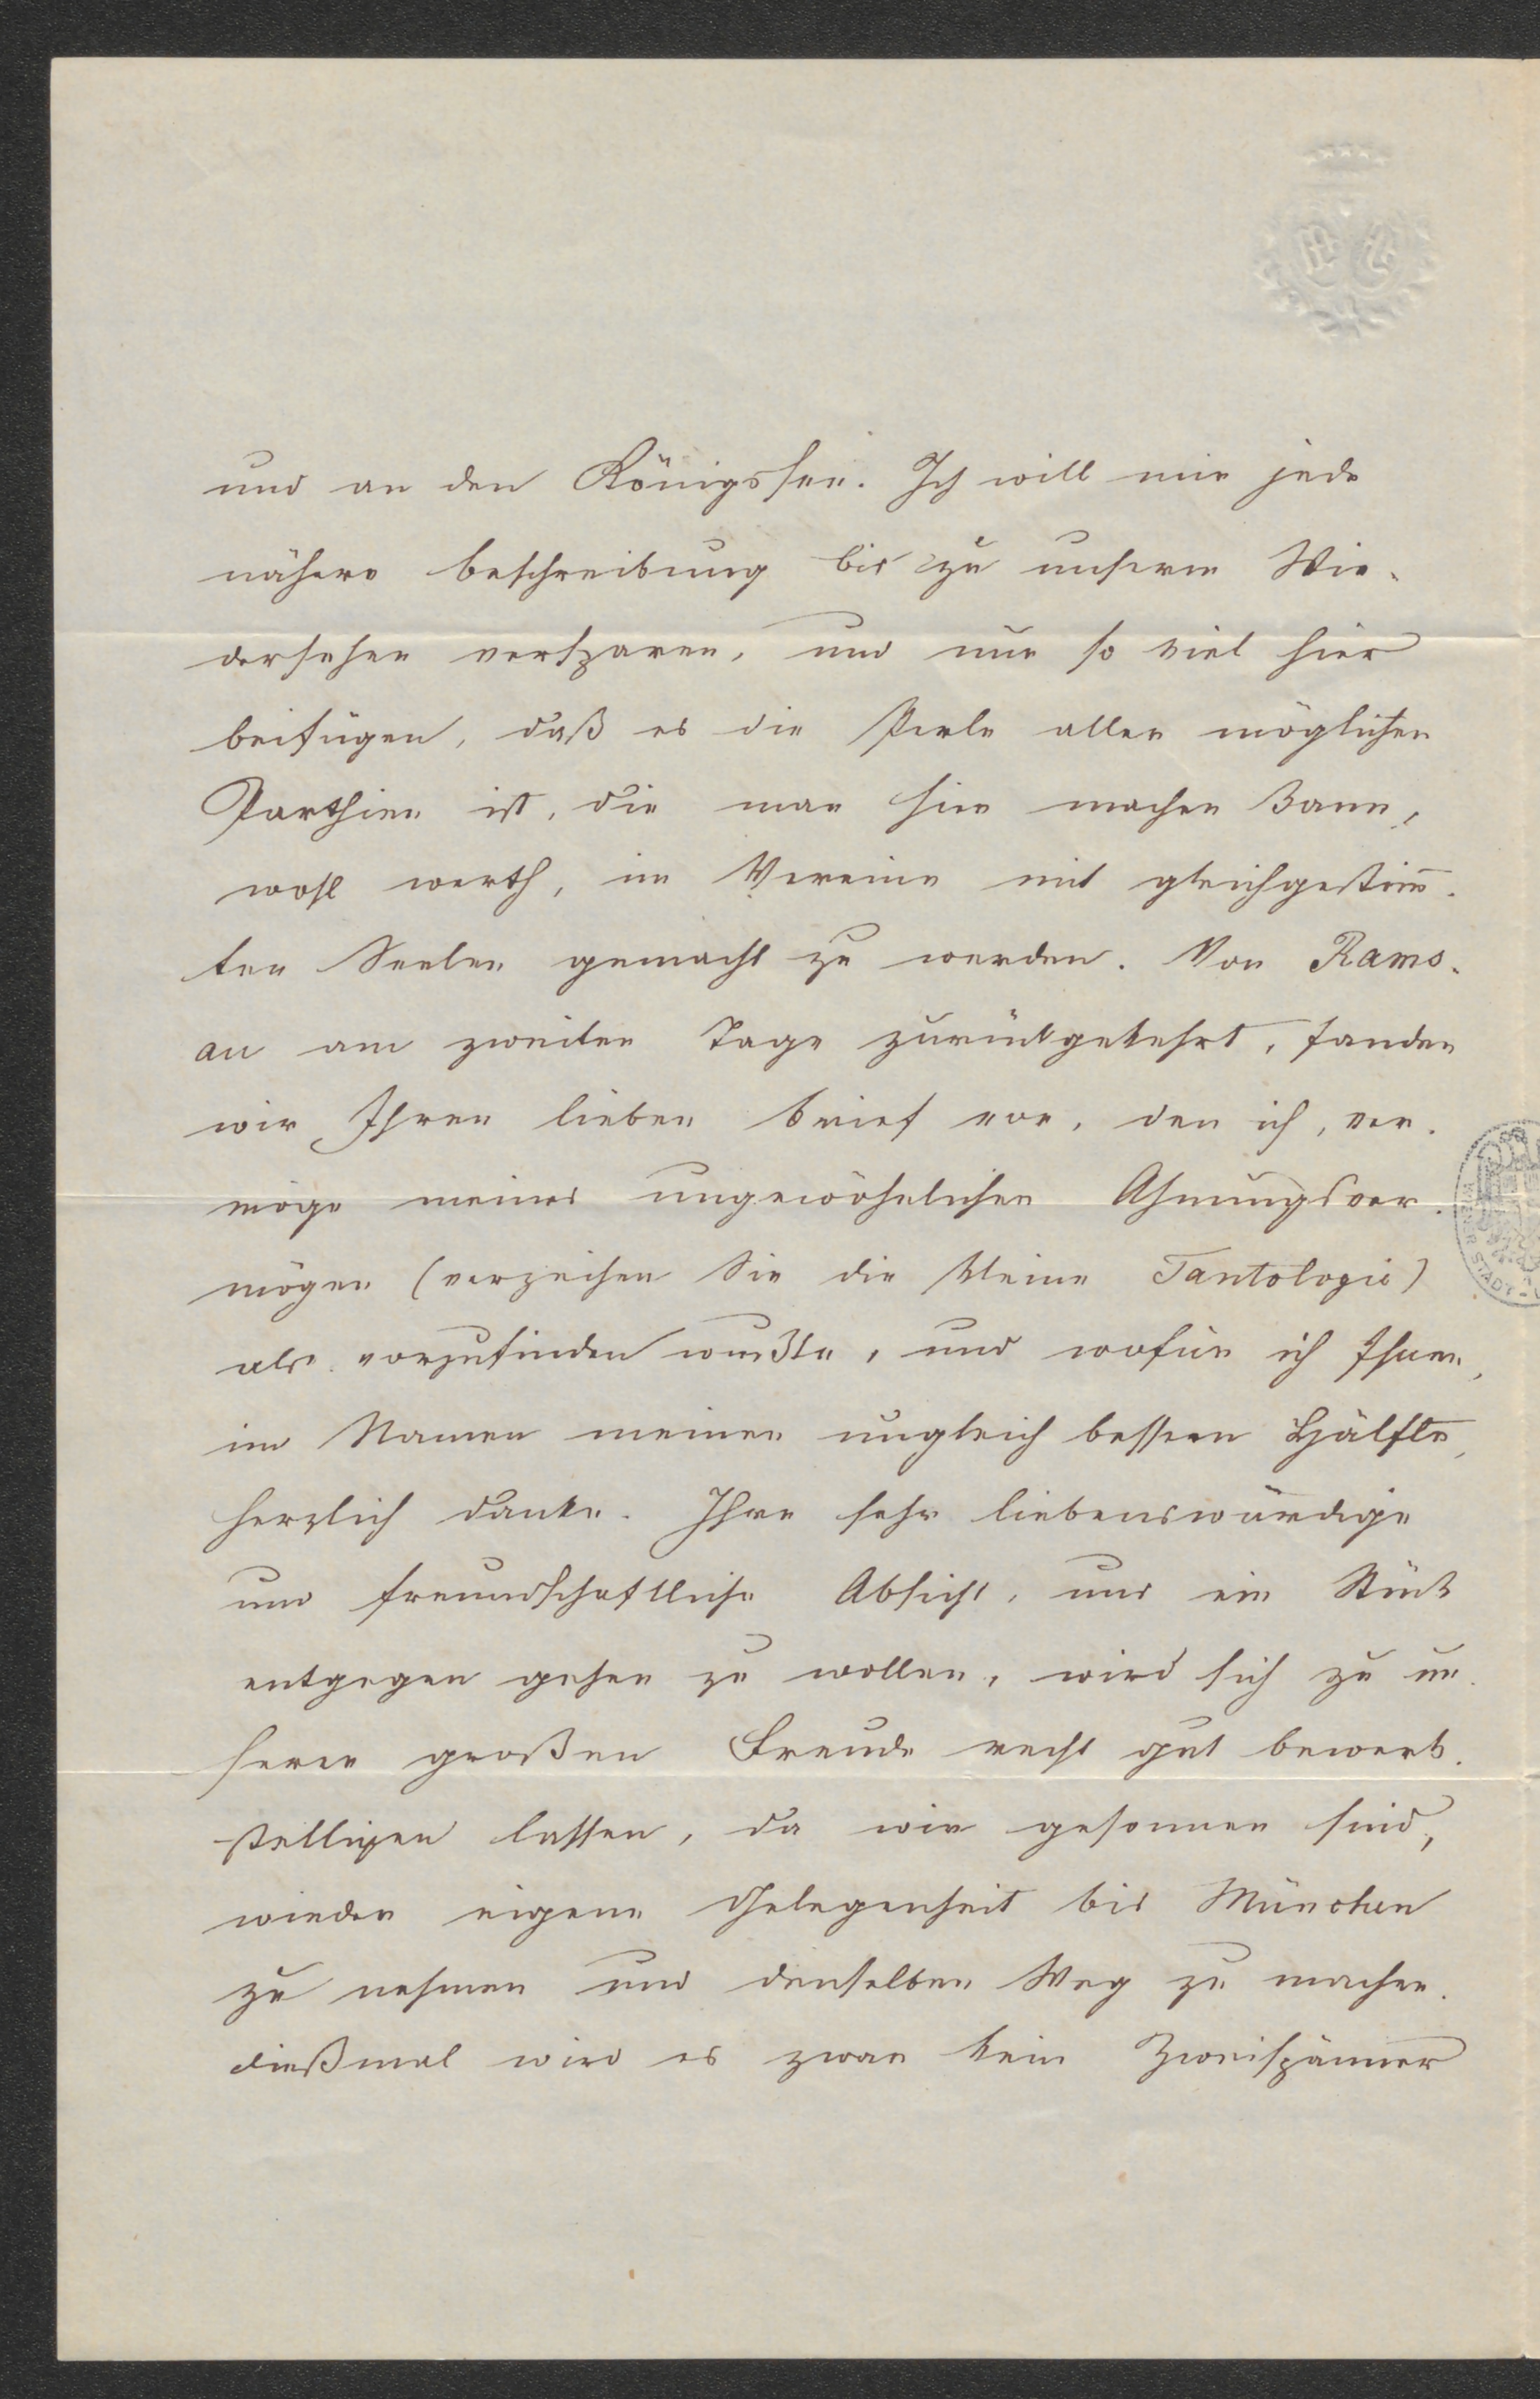 und an den Königssee. Ich will mir jede
nähere beschreibung bis zu unserm Wie-
dersehen versparen, und nur so viel hier
beifügen, daß es die Perle aller möglichen
Parthien ist, die man hier machen kann,
wohl werth, im Vereine mit gleichgestim̅-
ten Seelen gemacht zu werden. Von Rams-
au am zweiten Tage zurückgekehrt, fanden
wir Ihren lieben brief vor, den ich, ver-
möge meines ungewöhnlichen Ahnungsver-
mögen (verzeihen Sie die kleine Tautologie)
als vorzufinden wußte, und wofür ich Ihnen,
im Namen meiner ungleich bessern Hälfte,
herzlich danke. Ihre sehr liebenswürdige
und freundschaftliche Absicht, uns ein Stück
entgegen gehen zu wollen, wird sich zu un-
serer großen Freude recht gut bewerk-
stelligen lassen, da wir gesonnen sind,
wieder eigene Gelegenheit bis München
zu nehmen und denselben Weg zu machen.
dießmal wird es zwar kein Zweispänner
WIENER STADT-